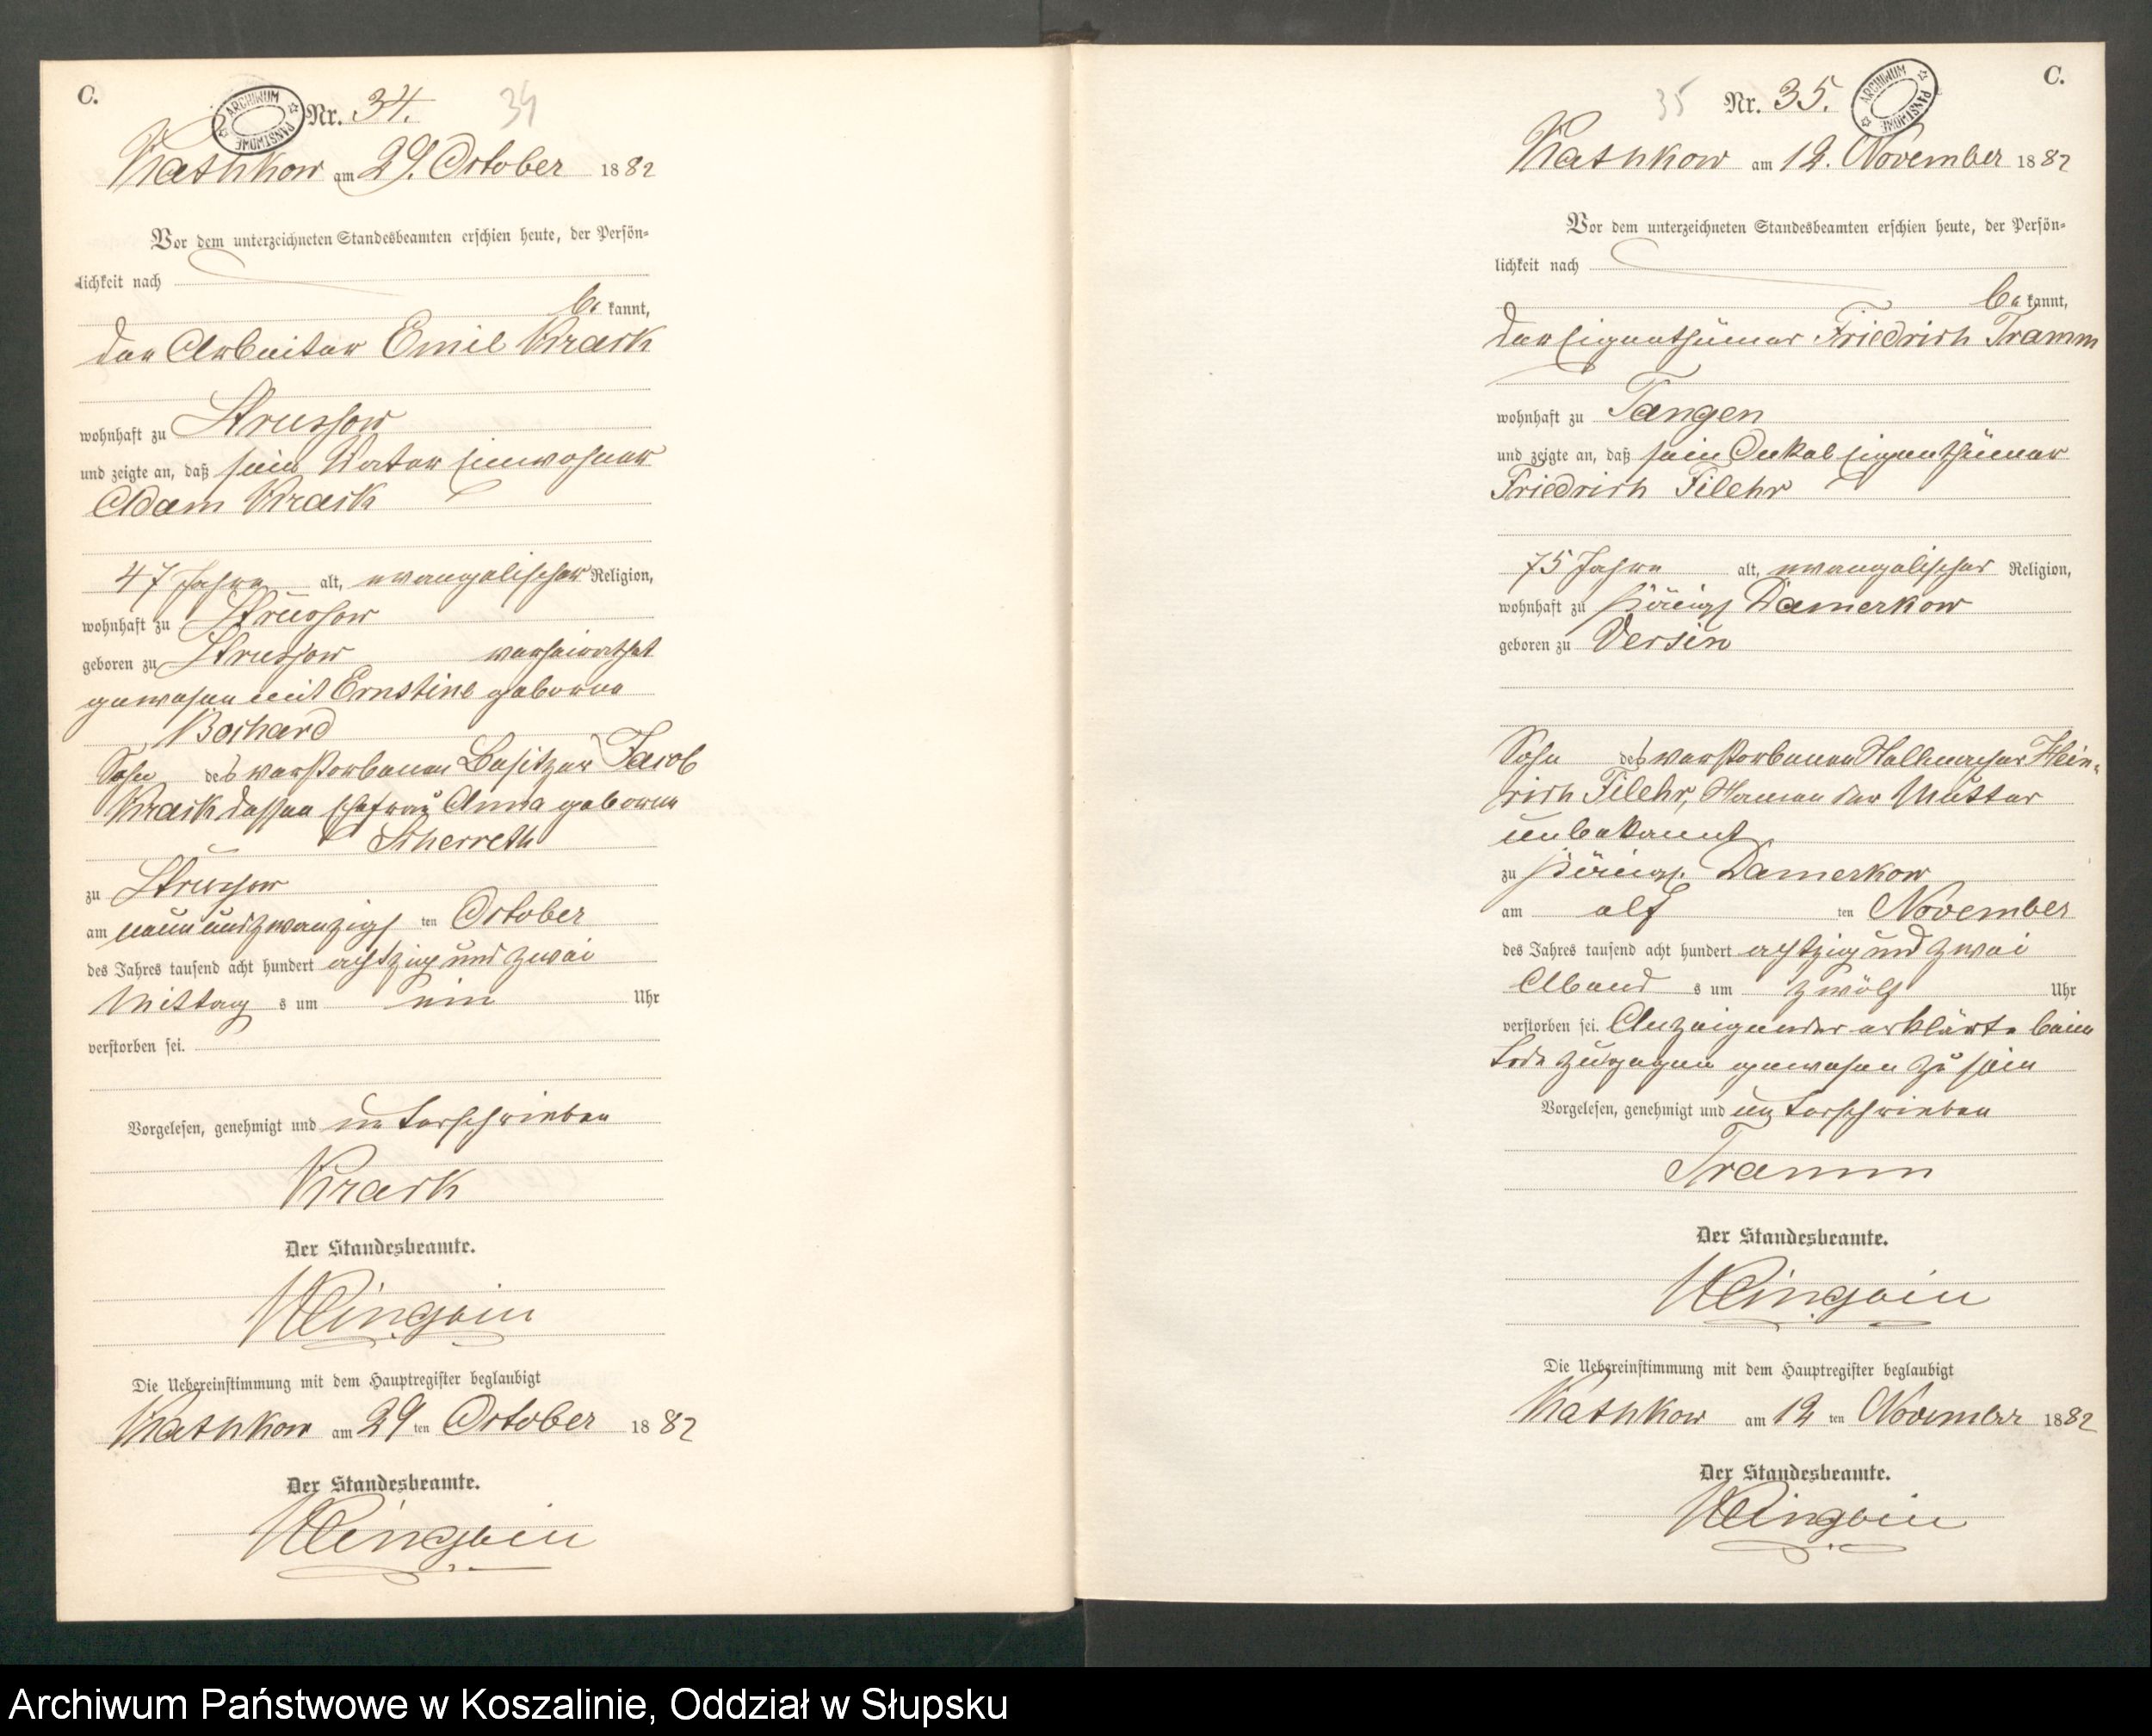 C.
ARCHIWUM PAŃSTWOWE
Nr. 34.
34
Kathkow am 29. October 1882
Vor dem unterzeichneten Standesbeamten erschien heute, der Persön=
lichkeit nach
be kannt,
der Arbeiter Emil Krack
wohnhaft zu Strussow
und zeigte an, daß sein Vater Einwohner
Adam Krack
47 Jahre alt, evangelischer Religion,
wohnhaft zu Strussow
geboren zu Strussow verheirathet
gewesen mit Ernstine geborne
Bochard
Sohn des verstorbenen Besitzer Jacob
Krack dessen Ehefrau Anna geborne
Scherreth
zu Strussow
am neun und zwanzigs ten October
des Jahres tausend acht hundert achtzig und zwei
Mittag s um ein Uhr
verstorben sei.
Vorgelesen, genehmigt und unterschrieben
Krack
Der Standesbeamte.
Die Uebereinstimmung mit dem Hauptregister beglaubigt
Kathkow am 29 ten October 1882
Der Standesbeamte.
C.
35 Nr. 35.
ARCHIWUM PAŃSTWOWE
Kathkow am 12. November 1882
Vor dem unterzeichneten Standesbeamten erschien heute, der Persön=
lichkeit nach
be kannt,
der Eigenthümer Friedrich Tramm
wohnhaft zu Tangen
und zeigte an, daß sein Onkel Eigenthümer
Friedrich Filehr
75 Jahre alt, evangelischer Religion,
wohnhaft zu Königs Damerkow
geboren zu Versin
Sohn des verstorbenen Halbbauer Hein=
rich Filehr, Namen der Mutter
unbekannt
zu Königs. Damerkow
am elf ten November
des Jahres tausend acht hundert achtzig und zwei
Abend s um zwölf Uhr
verstorben sei. Anzeigender erklärte beim
Tode zugegen gewesen zu sein
Vorgelesen, genehmigt und unterschrieben
Tramm
Der Standesbeamte.
Die Uebereinstimmung mit dem Hauptregister beglaubigt
Kathkow am 12 ten November 1882
Der Standesbeamte.
Archiwum Państwowe w Koszalinie, Oddział w Słupsku